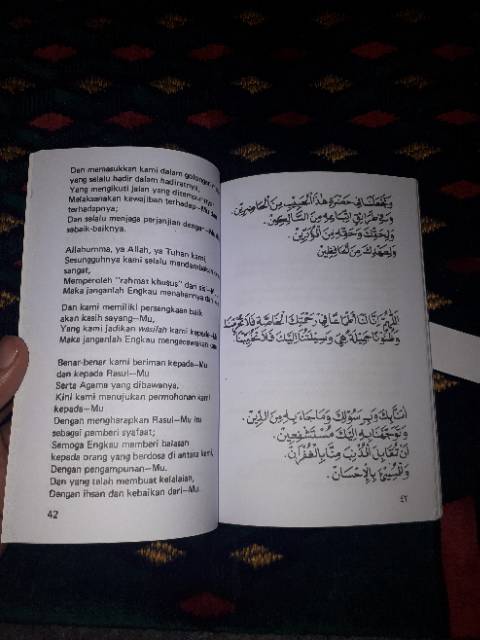 Dan memasukkan kami dalam golongan
yang selalu hadir dalam hadiratnya,
Yang mengikuti jalan yang ditempuhnya
Melaksanakan kewajiban terhadap-Mu
terhadapnya;
Dan selalu menjaga perjanjian dengan-Mu
sebaik-baiknya.
Allahumma, ya Allah, ya Tuhan kami,
Sesungguhnya kami selalu mendambakan
sangat,
Memperoleh "rahmat khusus" dari sisi-Mu
Maka janganlah Engkau menahannya dari
Dan kami memiliki persengkaan baik
akan kasih sayang-Mu,
Yang kami jadikan wasilah kami kepada-Mu
Maka janganlah Engkau mengecewakan
Benar-benar kami beriman kepada-Mu
dan kepada Rasul-Mu
Serta Agama yang dibawanya,
Kini kami menujukan permohonan kami
kepada-Mu
Dengan mengharapkan Rasul-Mu itu
sebagai pemberi syafaat;
Semoga Engkau memberi balasan
kepada orang yang berdosa di antara kami,
Dengan pengampunan-Mu.
Dan yang telah membuat kelalaian,
Dengan ihsan dan kebaikan dari-Mu
42
وَتَجْعَلَنَا فِي حَضْرَةِ هٰذَا الْحَبِيْبِ مِنَ الْحَاضِرِيْنَ.
وَفِي طَرَائِقِ اتِّبَاعِهِ مِنَ السَّالِكِيْنَ.
وَلِحَقِّكَ وَحَقِّهِ مِنَ الْمُؤَدِّيْنَ.
وَلِعَهْدِكَ مِنَ الْحَافِظِيْنَ
اللّٰهُمَّ إِنَّ لَنَا أَطْمَاعًا فِي رَحْمَتِكَ الْخَاصَّةِ فَلَا تَحْرِمْنَا
وَظُنُوْنًا جَمِيْلَةً هِيَ وَسِيْلَتُنَا إِلَيْكَ فَلَا تُخَيِّبْنَا
اٰمَنَّا بِكَ وَبِرَسُوْلِكَ وَمَا جَاءَ بِهِ مِنَ الدِّيْنِ.
وَتَوَجَّهْنَا بِهِ إِلَيْكَ مُسْتَشْفِعِيْنَ.
أَنْ تُقَابِلَ الْمُذْنِبَ مِنَّا بِالْغُفْرَانِ.
وَالْمُسِيْءَ بِالْإِحْسَانِ.
٤٢